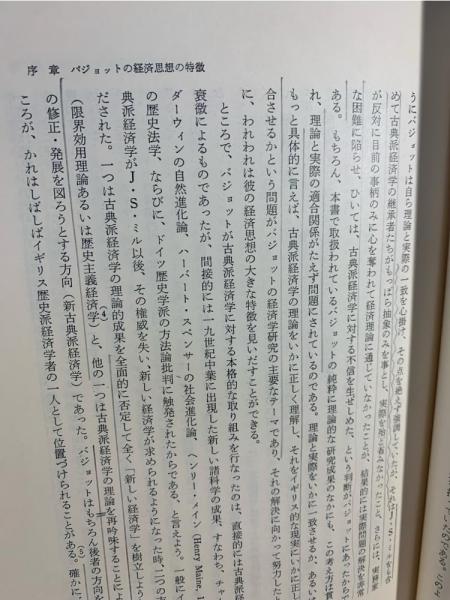 序章 バジョットの経済思想の特徴
うにバジョットは自ら理論と実際の一致を心掛け、その点を絶えず強調していたが、それは J・S・ミルを含
めて古典派経済学の継承者たちがもっぱら抽象のみを事とし、実際を殆ど省みなかったこと、さらには、実務家
が反対に目前の事柄のみに心を奪われて経済理論に通じていなかったことが、結果的には実際問題の解決を非常
な困難に陥らせ、ひいては、古典派経済学に対する不信を生ぜしめた、という判断がバジョットにあったからで
ある。もちろん、本書で取扱われているバジョットの純粋に理論的な研究成果のなかにも、この考え方は貫
れ、理論と実際の適合関係がたえず問題にされているのである。理論と実際をいかに一致させるか、あるい
もっと具体的に言えば、古典派経済学の理論をいかに正しく理解し、それをイギリス的な現実にいかに正し
合させるかという問題がバジョットの経済学研究の主要なテーマであり、それの解決に向かって努力した
に、われわれは彼の経済思想の大きな特徴を見いだすことができる。
ところで、バジョットが古典派経済学に対する本格的な取り組みを行なったのは、直接的には古典派経
衰微によるものであったが、間接的には一九世紀中葉に出現した新しい諸科学の成果、すなわち、チャー
ダーウィンの自然進化論、ハーバート・スペンサーの社会進化論、ヘンリー・メイン (Henry Maine, 1
の歴史法学、ならびに、ドイツ歴史学派の方法論批判に触発されたからである、と言えよう。一般にイ
典派経済学がJ・S・ミル以後、その権威を失い、新しい経済学が求められるようになった時、二つの方
だされた。一つは古典派経済学の理論的成果を全面的に否定して全く「新しい経済学」を樹立しよう
(限界効用理論あるいは歴史主義経済学)(4)と、他の一つは古典派経済学の理論を再吟味することによ
の修正・発展を図ろうとする方向(新古典派経済学)であった。バジョットはもちろん後者の方向を
ころが、かれはしばしばイギリス歴史学派経済学者の一人として位置づけられることがある。(5)確かに、